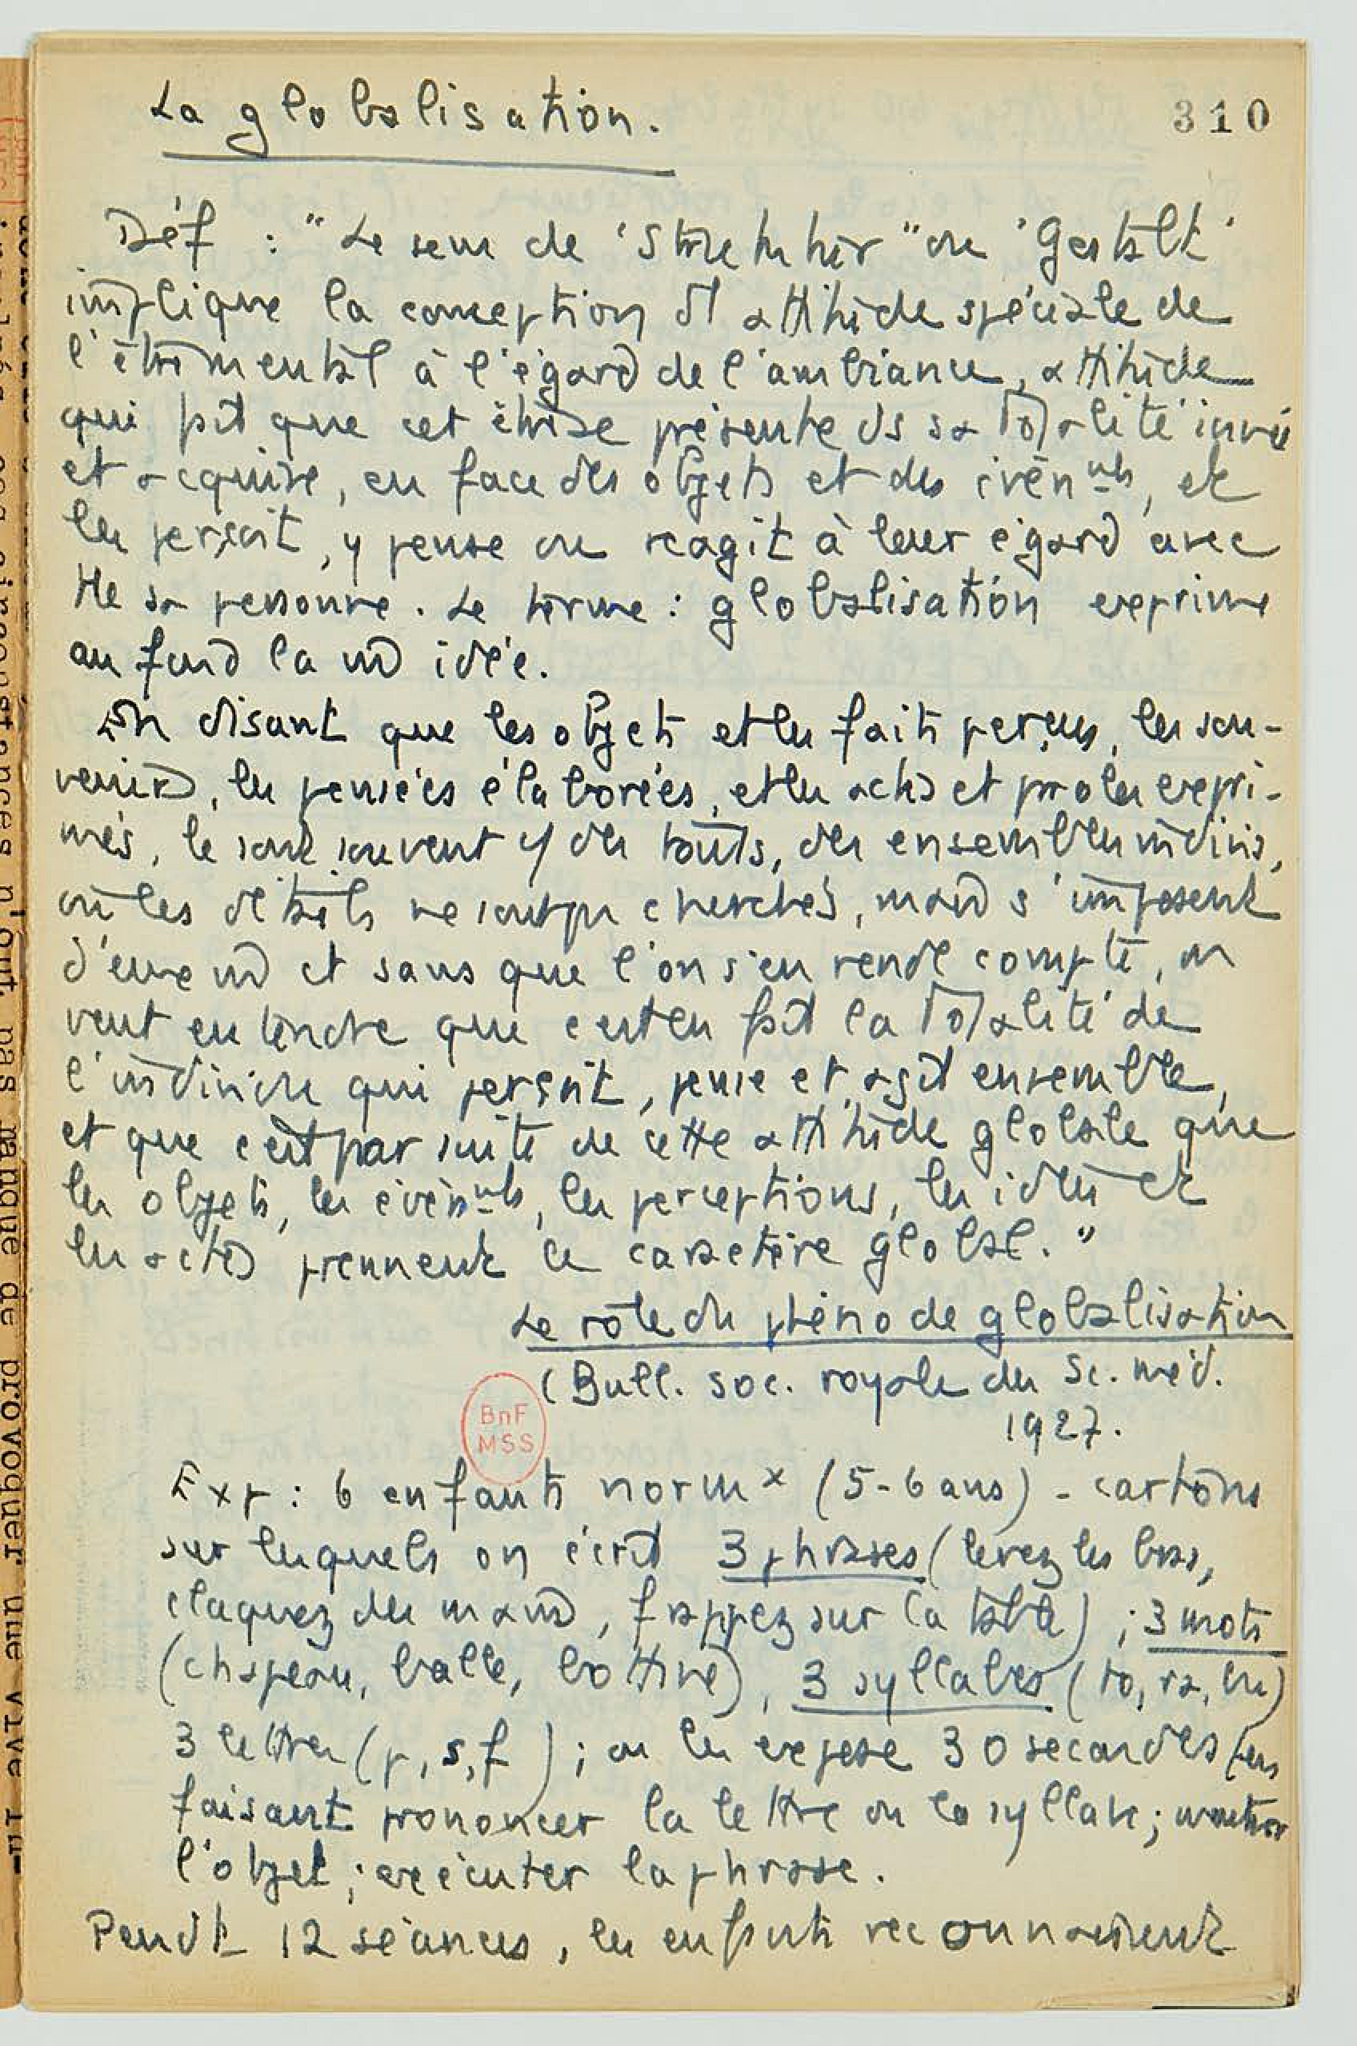 La globalisation.
310
Déf : "Le sens de 'Struktur" ou 'Gestalt'
implique la conception d'1 attitude spéciale de
l'être mental à l'égard de l'ambiance, attitude
qui fait que cet être se présente ds sa totalité innée
et acquise, en face des objets et des évén nts, et
les perçoit, y pense ou réagit à leur égard avec
tte sa personne. Le terme : globalisation exprime
au fond la m idée.
En disant que les objets et les faits perçus, les sou-
venirs, les pensées élaborées, et les actes et paroles expri-
més, le sont souvent des touts, des ensembles indivis,
où les détails ne sont pas cherchés, mais s'imposent
et sans que l'on s'en rende compte, on
veut entendre que c'est en fait la totalité de
l'individu qui perçoit, pense et agit ensemble,
et que c'est par suite de cette attitude globale que
les objets, les événnts, les perceptions, les idées et
les actes prennent ce caractère global."
Le rôle du phéno de globalisation
(Bull. soc. royale des Sc. méd.
1927.
BnF
MSS
Exp : 6 enfants normx (5-6 ans) - cartons
sur lesquels on écrit 3 phrases (levez les bras,
claquez des mains, frappez sur la table) ; 3 mots
(chapeau, balle, bottine), 3 syllabes (to, ra, bu)
3 lettres (p, s, f) ; on les expose 30 secondes (en
faisant prononcer la lettre ou la syllabe ; montrer
l'objet ; exécuter la phrase.
Pendt 12 séances, les enfants reconnaissent